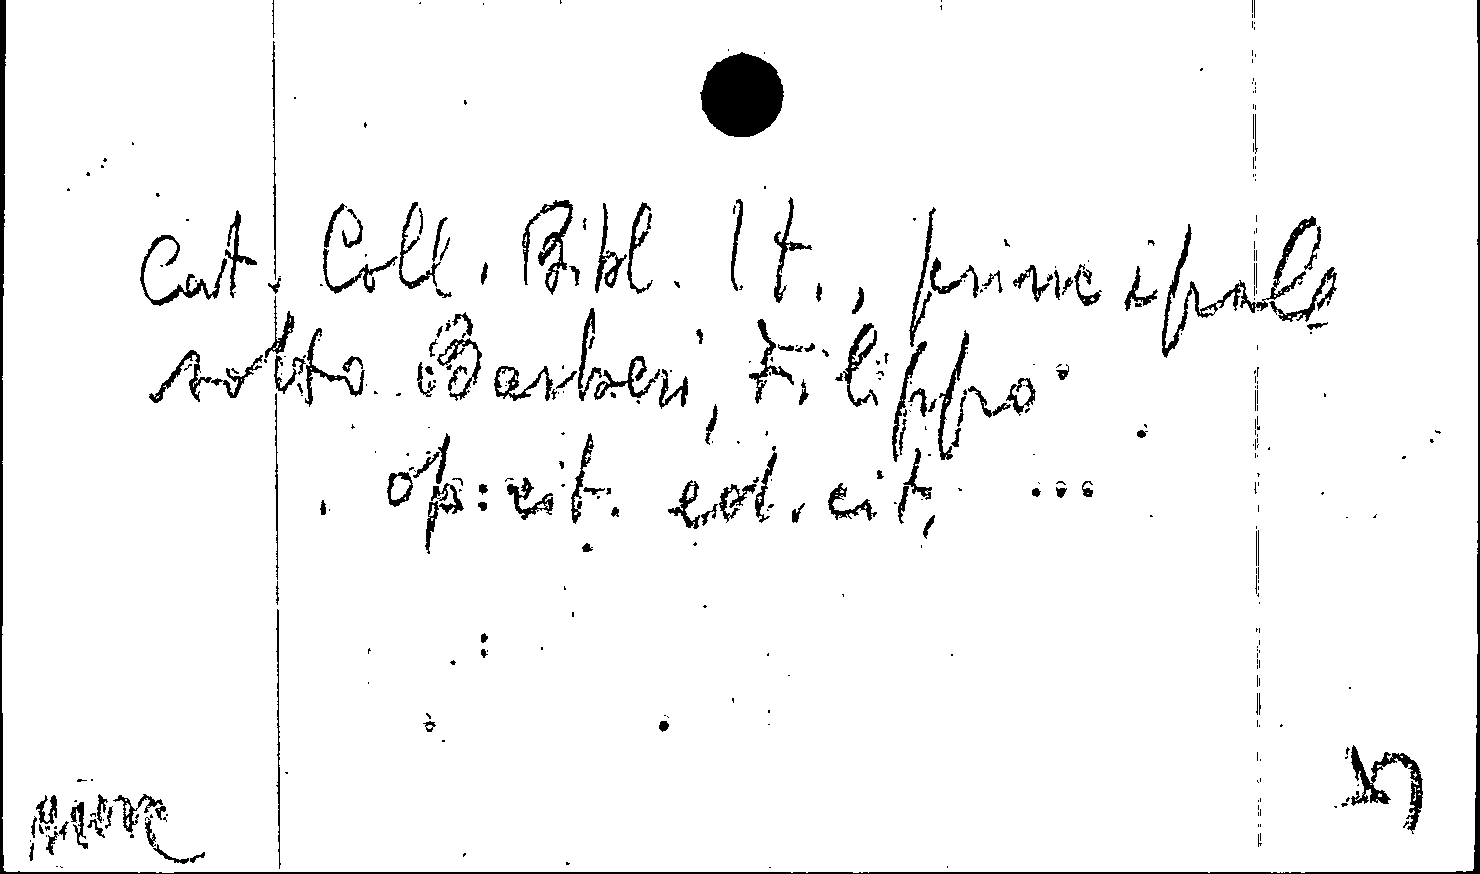 Cat. Coll. Bibl. It., principale
sotto Barberi, Filippo
op: cit. ed. cit, ...